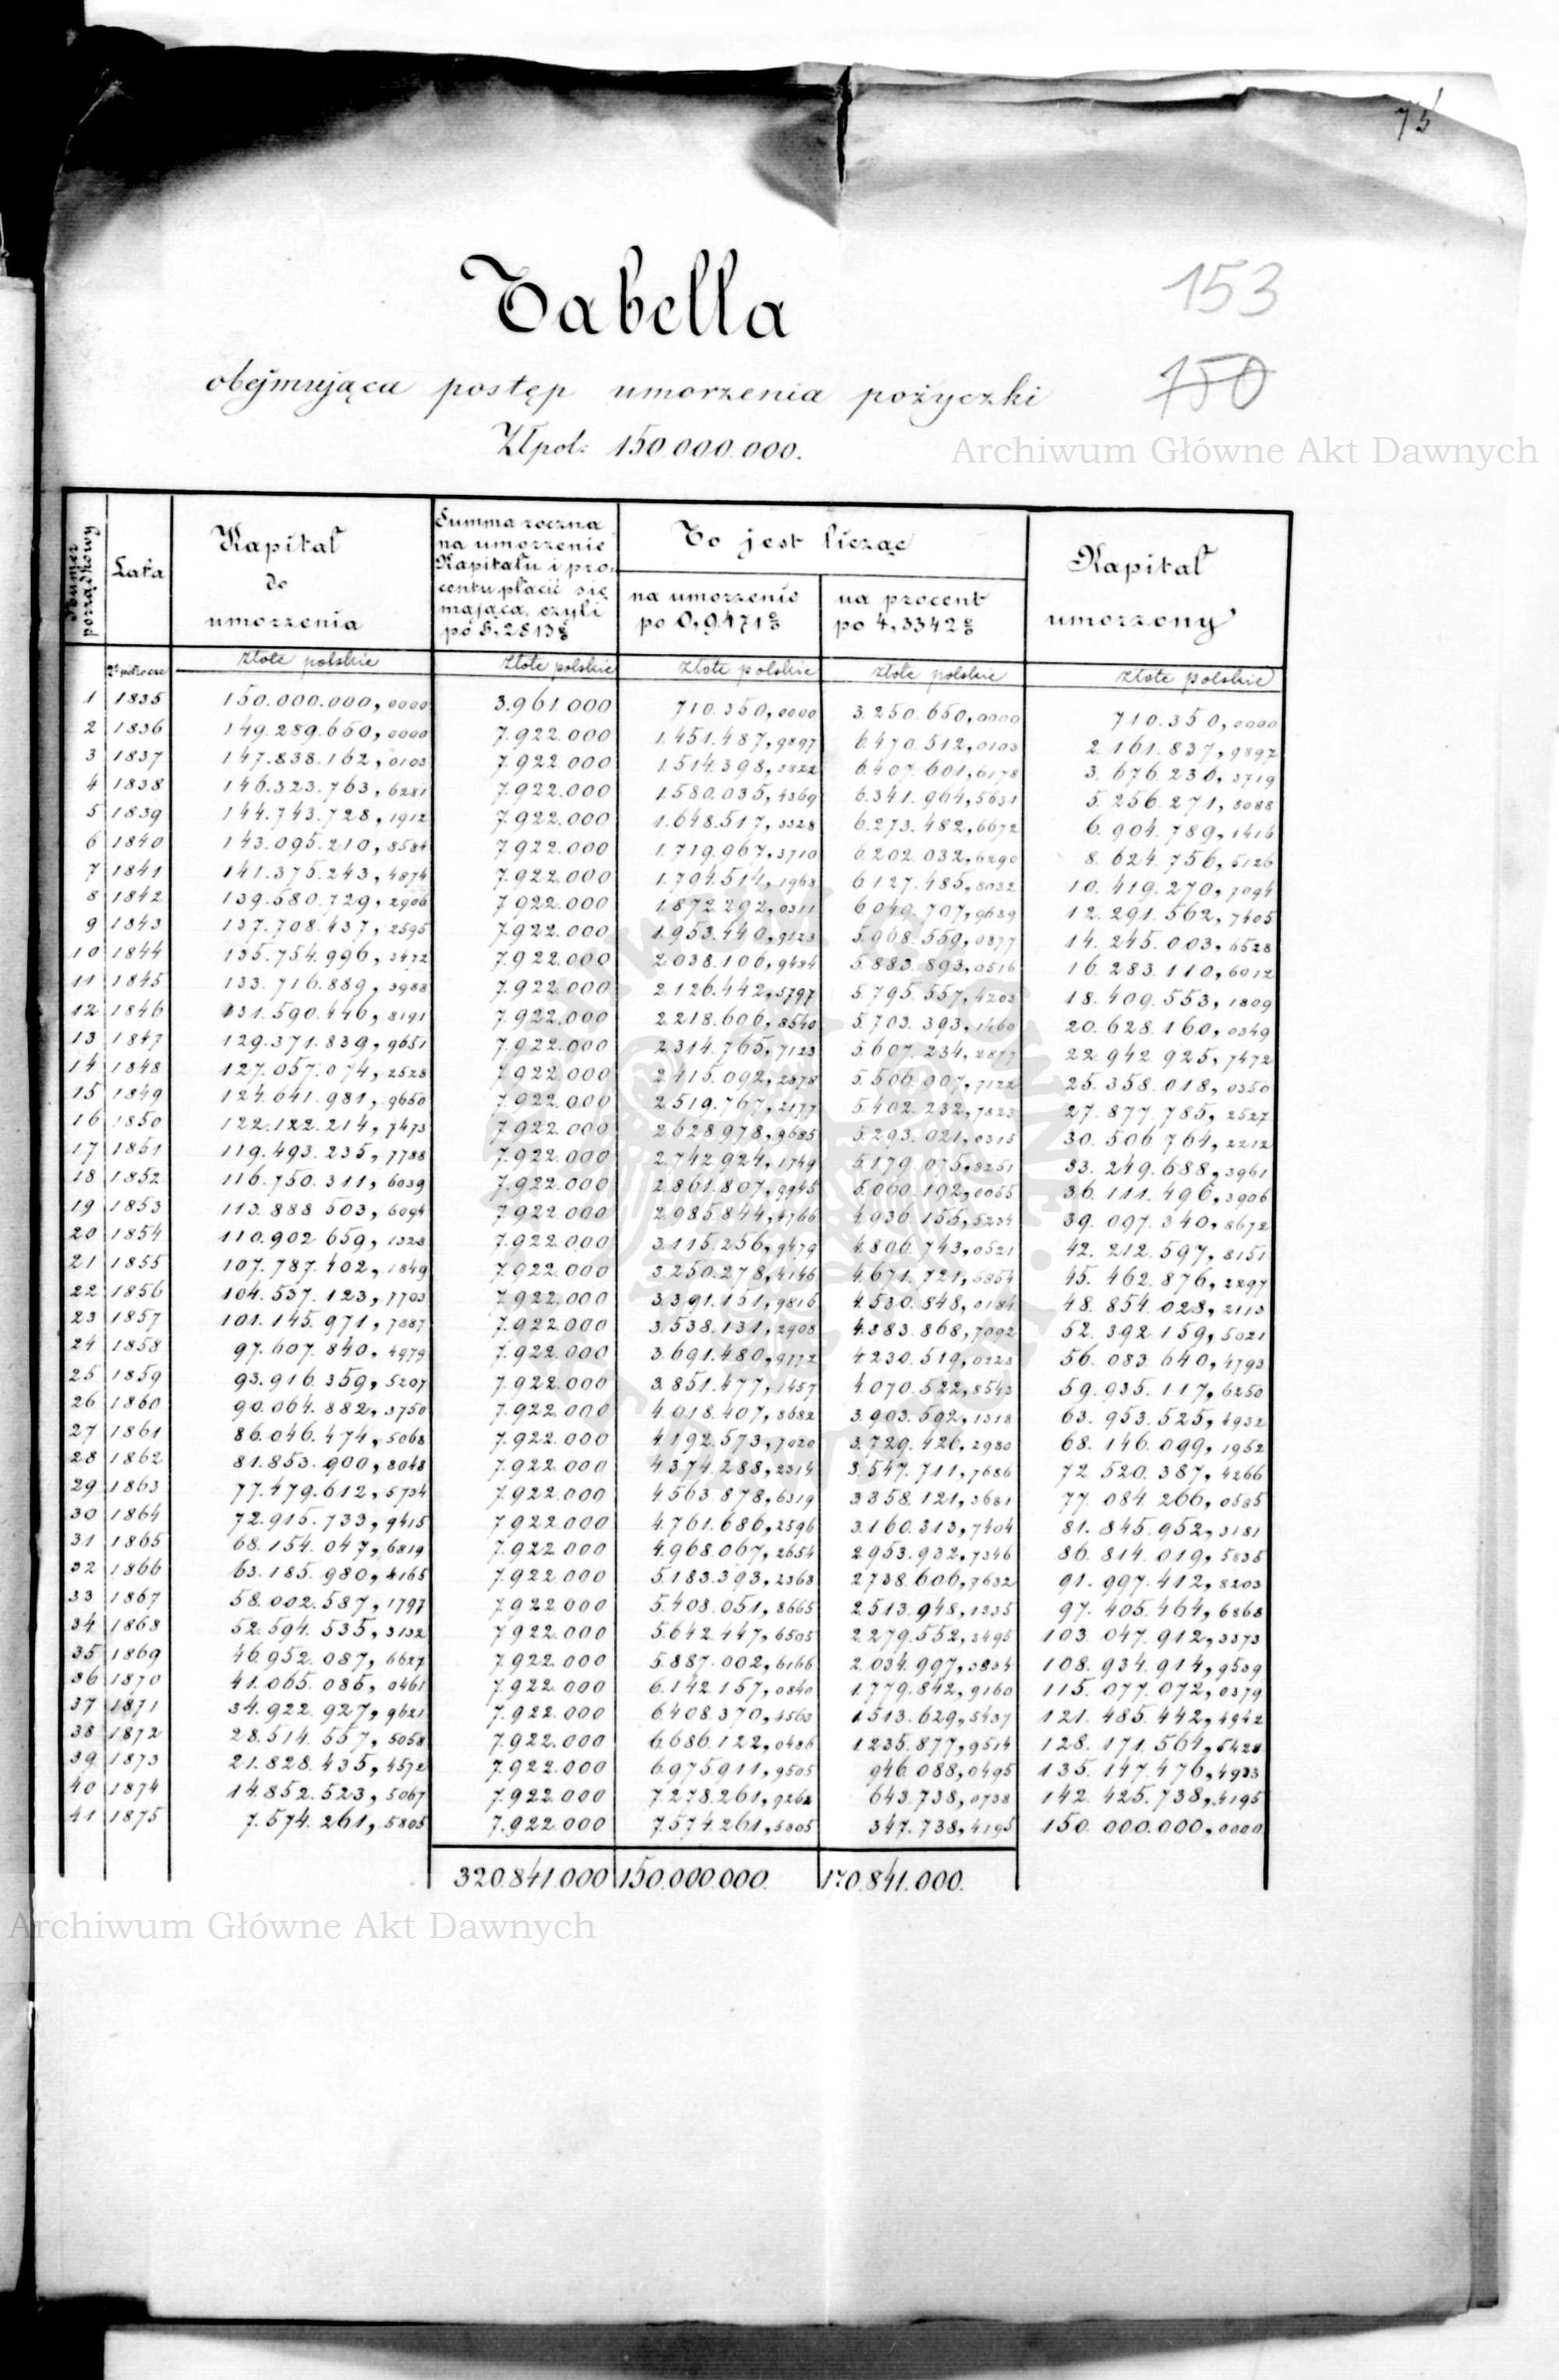 75
153
150
Tabella
obejmująca postęp umorzenia pożyczki
Złpol: 150.000.000.
Archiwum Główne Akt Dawnych
Numer porządkowy
Lata
Kapitał
do
umorzenia
Summa roczna
na umorzenie
Kapitału i pro-
centu płacić się
mająca, czyli
po 5,2813%
To jest licząc
na umorzenie
po 0,9471%
na procent
po 4,3342%
Kapitał
umorzony
2e półrocze złote polskie złote polskie złote polskie złote polskie złote polskie
1 1835 150.000.000,0000 3.961.000 710.350,0000 3.250.650,0000 710.350,0000
2 1836 149.289.650,0000 7.922.000 1.451.487,9897 6.470.512,0103 2.161.837,9897
3 1837 147.838.162,0103 7.922.000 1.514.398,3822 6.407.601,6178 3.676.236,3719
4 1838 146.323.763,6281 7.922.000 1.580.035,4369 6.341.964,5631 5.256.271,8088
5 1839 144.743.728,1912 7.922.000 1.648.517,3328 6.273.482,6672 6.904.789,1416
6 1840 143.095.210,8584 7.922.000 1.719.967,3710 6.202.032,6290 8.624.756,5126
7 1841 141.375.243,4874 7.922.000 1.794.514,1968 6.127.485,8032 10.419.270,7094
8 1842 139.580.729,2906 7.922.000 1.872.292,0311 6.049.707,9689 12.291.562,7405
9 1843 137.708.437,2595 7.922.000 1.953.440,9123 5.968.559,0877 14.245.003,6528
10 1844 135.754.996,3472 7.922.000 2.038.106,9484 5.883.893,0516 16.283.110,6012
11 1845 133.716.889,3988 7.922.000 2.126.442,5797 5.795.557,4203 18.409.553,1809
12 1846 131.590.446,8191 7.922.000 2.218.606,8540 5.703.393,1460 20.628.160,0349
13 1847 129.371.839,9651 7.922.000 2.314.765,7123 5.607.234,2877 22.942.925,7472
14 1848 127.057.074,2528 7.922.000 2.415.092,2878 5.506.907,7122 25.358.018,0350
15 1849 124.641.981,9650 7.922.000 2.519.767,2177 5.402.232,7823 27.877.785,2527
16 1850 122.122.214,7473 7.922.000 2.628.978,9685 5.293.021,0315 30.506.764,2212
17 1851 119.493.235,7788 7.922.000 2.742.924,1749 5.179.075,8251 33.249.688,3961
18 1852 116.750.311,6039 7.922.000 2.861.807,9945 5.060.192,0055 36.111.496,3906
19 1853 113.888.503,6094 7.922.000 2.985.844,4766 4.936.155,5234 39.097.340,8672
20 1854 110.902.659,1328 7.922.000 3.115.256,9479 4.806.743,0521 42.212.597,8151
21 1855 107.787.402,1849 7.922.000 3.250.278,4146 4.671.721,5854 45.462.876,2297
22 1856 104.537.123,7703 7.922.000 3.391.151,9816 4.530.848,0184 48.854.028,2113
23 1857 101.145.971,7887 7.922.000 3.538.131,2908 4.383.868,7092 52.392.159,5021
24 1858 97.607.840,4979 7.922.000 3.691.480,9772 4.230.519,0228 56.083.640,4793
25 1859 93.916.359,5207 7.922.000 3.851.477,1457 4.070.522,8543 59.935.117,6250
26 1860 90.064.882,3750 7.922.000 4.018.407,8682 3.903.592,1318 63.953.525,4932
27 1861 86.046.474,5068 7.922.000 4.192.573,7020 3.729.426,2980 68.146.099,1952
28 1862 81.853.900,8048 7.922.000 4.374.288,2314 3.547.711,7686 72.520.387,4266
29 1863 77.479.612,5734 7.922.000 4.563.878,6319 3.358.121,3681 77.084.266,0585
30 1864 72.915.733,9415 7.922.000 4.761.686,2596 3.160.313,7404 81.845.952,3181
31 1865 68.154.047,6819 7.922.000 4.968.067,2654 2.953.932,7346 86.814.019,5835
32 1866 63.185.980,4165 7.922.000 5.183.393,2368 2.738.606,7632 91.997.412,8203
33 1867 58.002.587,1797 7.922.000 5.408.051,8665 2.513.948,1335 97.405.464,6868
34 1868 52.594.535,3132 7.922.000 5.642.447,6505 2.279.552,3495 103.047.912,3373
35 1869 46.952.087,6627 7.922.000 5.887.002,6166 2.034.997,3834 108.934.914,9539
36 1870 41.065.085,0461 7.922.000 6.142.157,0840 1.779.842,9160 115.077.072,0379
37 1871 34.922.927,9621 7.922.000 6.408.370,4563 1.513.629,5437 121.485.442,4942
38 1872 28.514.557,5058 7.922.000 6.686.122,0486 1.235.877,9514 128.171.564,5428
39 1873 21.828.435,4572 7.922.000 6.975.911,9505 946.088,0495 135.147.476,4933
40 1874 14.852.523,5067 7.922.000 7.278.261,9262 643.738,0738 142.425.738,4195
41 1875 7.574.261,5805 7.922.000 7.574.261,5805 347.738,4195 150.000.000,0000
320.841.000 150.000.000. 170.841.000.
Archiwum Główne Akt Dawnych